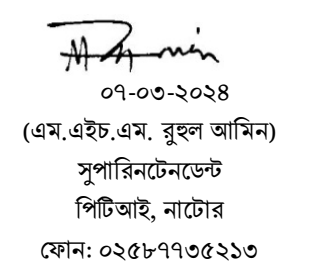 ০৭-০৩-২০২৪
(এম.এইচ.এম. রুহুল আমিন)
সুপারিনটেনডেন্ট
পিটিআই, নাটোর
ফোন: ০২৫৮৭৭৩৫২১৩